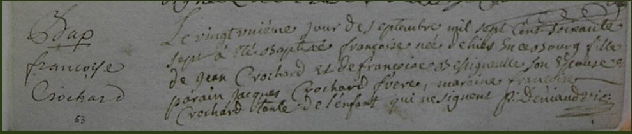 Bap
françoise
Crochard
63
Le vingtunième jour de septembre mil sept cent soixante
sept à été baptisée françoise née de hier en ce bourg fille
de Jean Crochard et de françoise son Epouse
parain Jacques Crochard frère, maraine françoise
Crochard tante de l'enfant qui ne signent